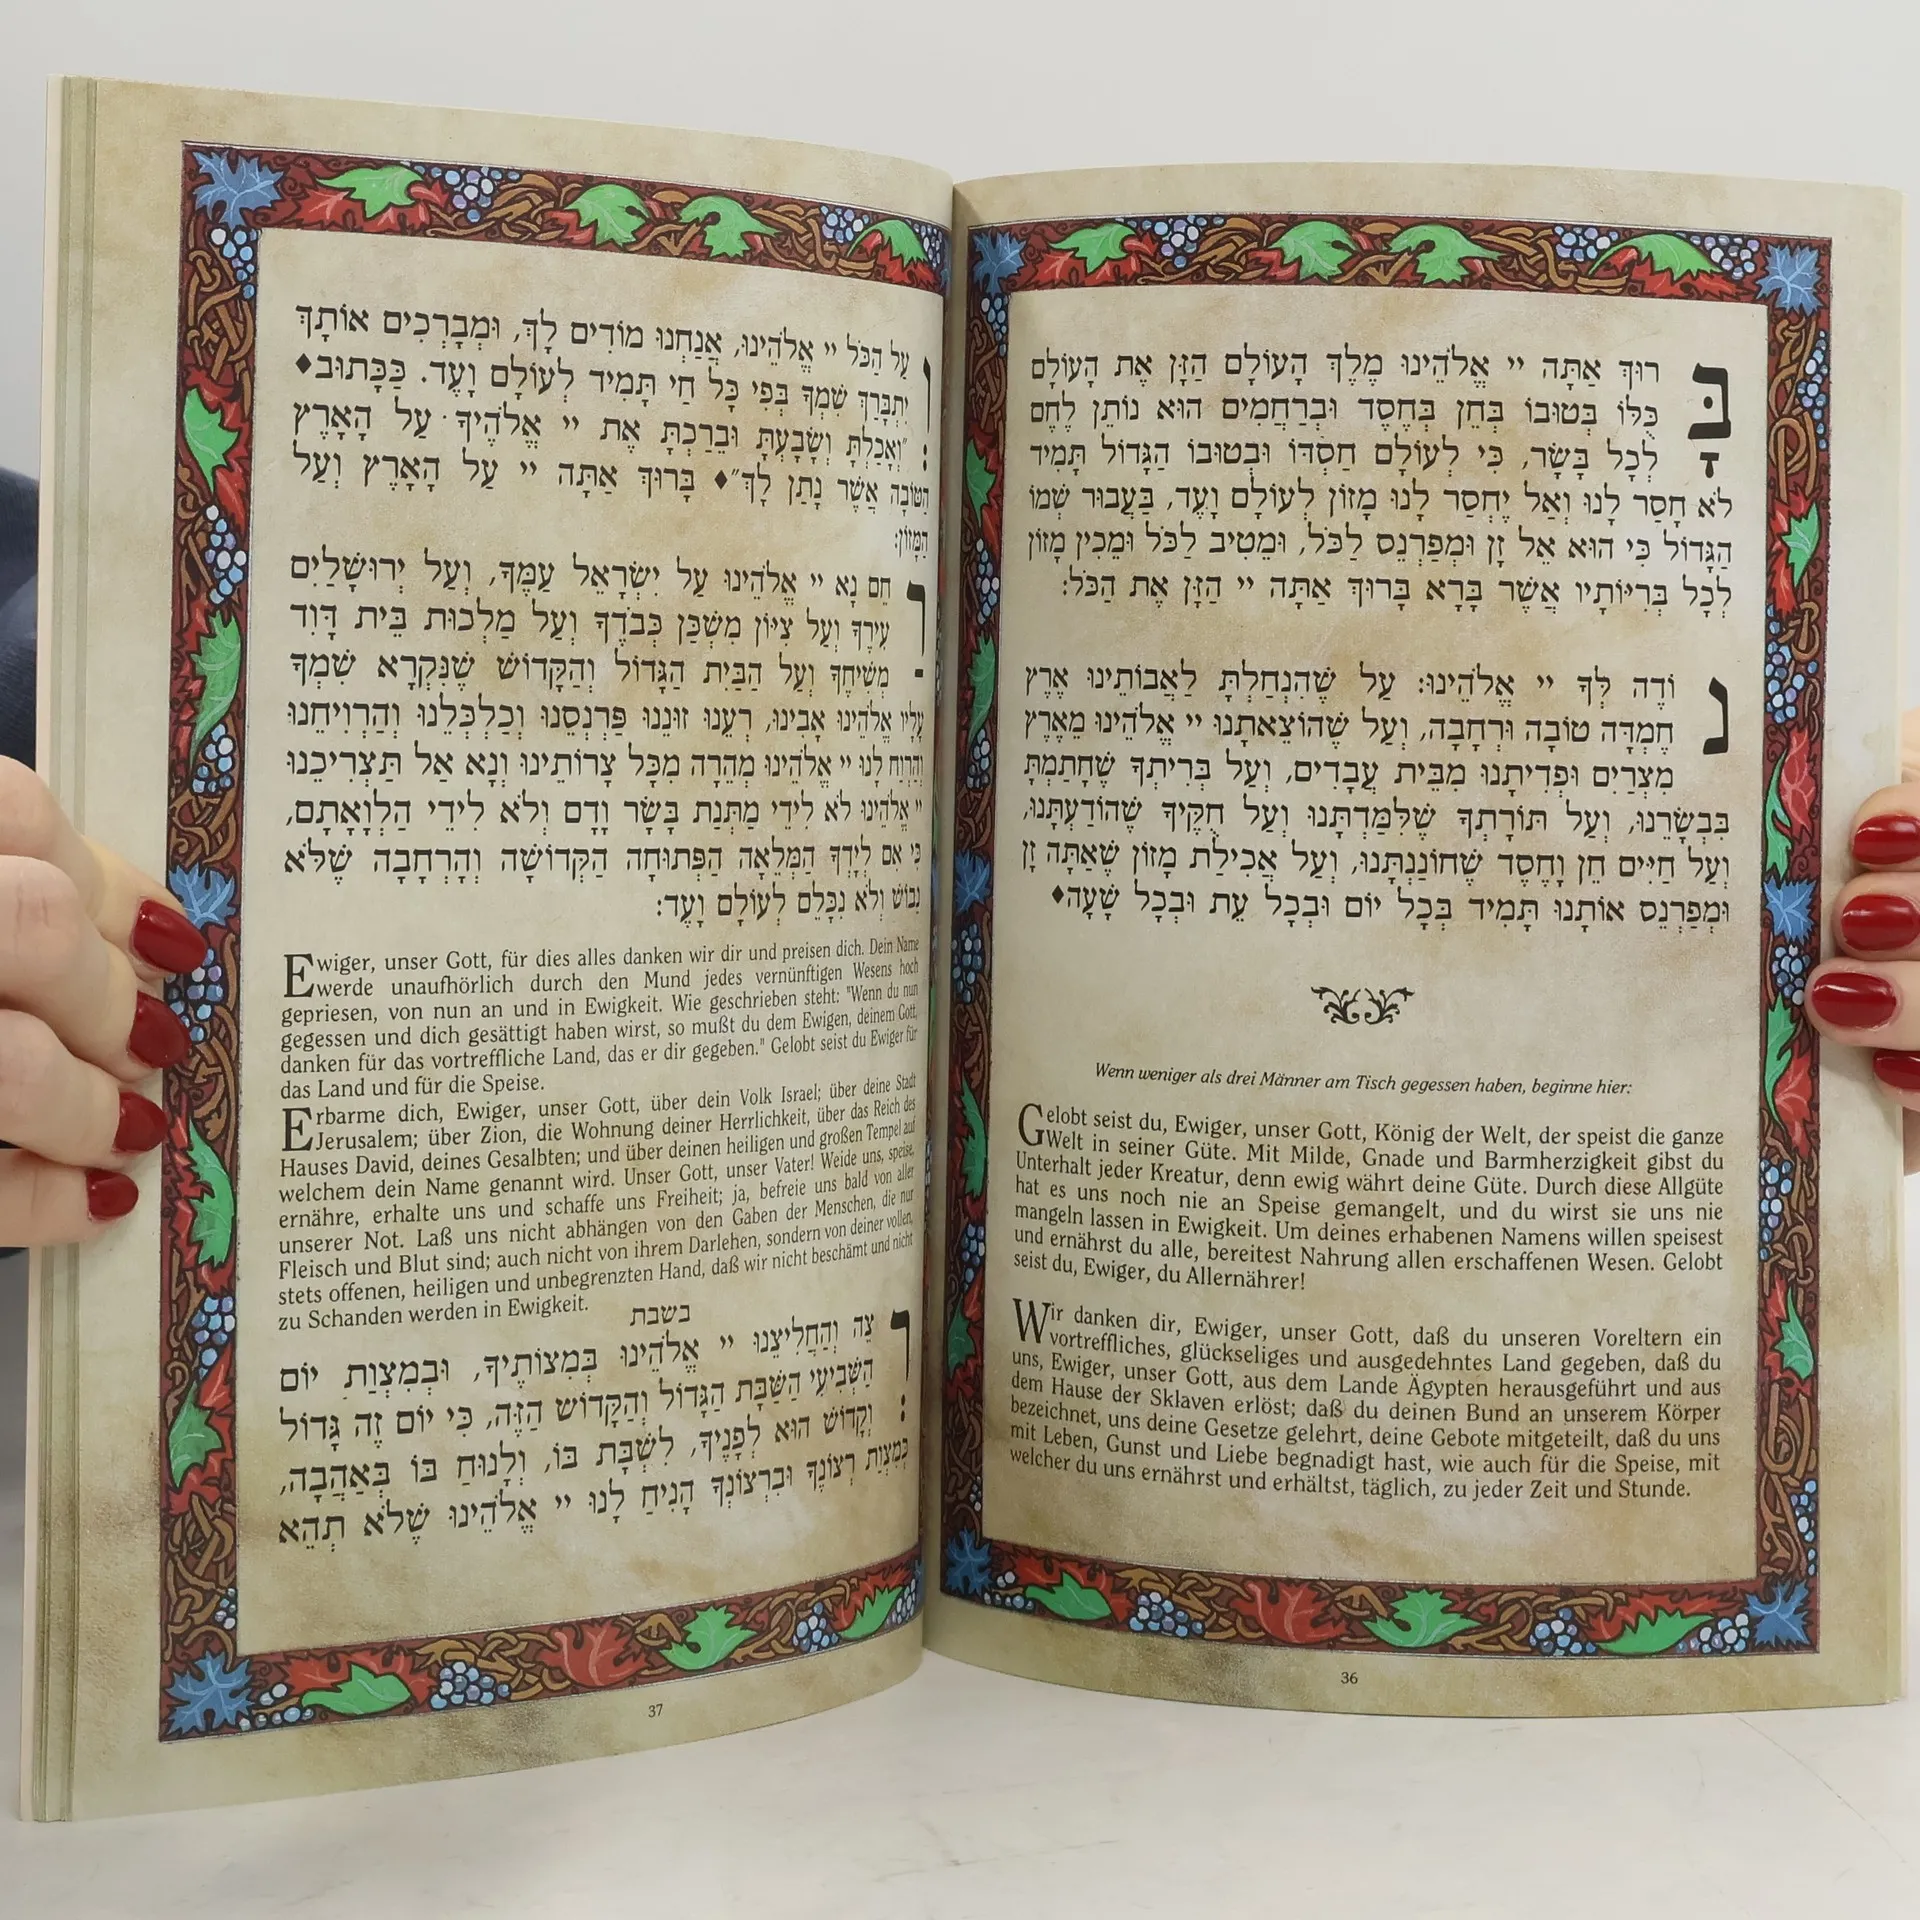 בָּרוּךְ אַתָּה יי אֱלֹהֵינוּ מֶלֶךְ הָעוֹלָם הַזָּן אֶת הָעוֹלָם
כֻּלּוֹ בְּטוּבוֹ בְּחֵן בְּחֶסֶד וּבְרַחֲמִים הוּא נוֹתֵן לֶחֶם
לְכָל בָּשָׂר, כִּי לְעוֹלָם חַסְדּוֹ וּבְטוּבוֹ הַגָּדוֹל תָּמִיד
לֹא חָסַר לָנוּ וְאַל יֶחְסַר לָנוּ מָזוֹן לְעוֹלָם וָעֶד, בַּעֲבוּר שְׁמוֹ
הַגָּדוֹל כִּי הוּא אֵל זָן וּמְפַרְנֵס לַכֹּל, וּמֵטִיב לַכֹּל וּמֵכִין מָזוֹן
לְכָל בְּרִיּוֹתָיו אֲשֶׁר בָּרָא בָּרוּךְ אַתָּה יי הַזָּן אֶת הַכֹּל:
נוֹדֶה לְּךָ יי אֱלֹהֵינוּ: עַל שֶׁהִנְחַלְתָּ לַאֲבוֹתֵינוּ אֶרֶץ
חֶמְדָּה טוֹבָה וּרְחָבָה, וְעַל שֶׁהוֹצֵאתָנוּ יי אֱלֹהֵינוּ מֵאֶרֶץ
מִצְרַיִם וּפְדִיתָנוּ מִבֵּית עֲבָדִים, וְעַל בְּרִיתְךָ שֶׁחָתַמְתָּ
בִּבְשָׂרֵנוּ, וְעַל תּוֹרָתְךָ שֶׁלִּמַּדְתָּנוּ וְעַל חֻקֶּיךָ שֶׁהוֹדַעְתָּנוּ,
וְעַל חַיִּים חֵן וָחֶסֶד שֶׁחוֹנַנְתָּנוּ, וְעַל אֲכִילַת מָזוֹן שָׁאַתָּה זָן
וּמְפַרְנֵס אוֹתָנוּ תָּמִיד בְּכָל יוֹם וּבְכָל עֵת וּבְכָל שָׁעָה♦
Wenn weniger als drei Männer am Tisch gegessen haben, beginne hier:
Gelobt seist du, Ewiger, unser Gott, König der Welt, der speist die ganze
Welt in seiner Güte. Mit Milde, Gnade und Barmherzigkeit gibst du
Unterhalt jeder Kreatur, denn ewig währt deine Güte. Durch diese Allgüte
hat es uns noch nie an Speise gemangelt, und du wirst sie uns nie
mangeln lassen in Ewigkeit. Um deines erhabenen Namens willen speisest
und ernährst du alle, bereitest Nahrung allen erschaffenen Wesen. Gelobt
seist du, Ewiger, du Allernährer!
Wir danken dir, Ewiger, unser Gott, daß du unseren Voreltern ein
vortreffliches, glückseliges und ausgedehntes Land gegeben, daß du
uns, Ewiger, unser Gott, aus dem Lande Ägypten herausgeführt und aus
dem Hause der Sklaven erlöst; daß du deinen Bund an unserem Körper
bezeichnet, uns deine Gesetze gelehrt, deine Gebote mitgeteilt, daß du uns
mit Leben, Gunst und Liebe begnadigt hast, wie auch für die Speise, mit
welcher du uns ernährst und erhältst, täglich, zu jeder Zeit und Stunde.
36
וְעַל הַכֹּל יי אֱלֹהֵינוּ, אֲנַחְנוּ מוֹדִים לָךְ, וּמְבָרְכִים אוֹתָךְ
יִתְבָּרַךְ שִׁמְךָ בְּפִי כָּל חַי תָּמִיד לְעוֹלָם וָעֶד. כַּכָּתוּב♦
"וְאָכַלְתָּ וְשָׂבָעְתָּ וּבֵרַכְתָּ אֶת יי אֱלֹהֶיךָ עַל הָאָרֶץ
הַטּוֹבָה אֲשֶׁר נָתַן לָךְ"♦ בָּרוּךְ אַתָּה יי עַל הָאָרֶץ וְעַל
הַמָּזוֹן:
רַחֵם נָא יי אֱלֹהֵינוּ עַל יִשְׂרָאֵל עַמֶּךָ, וְעַל יְרוּשָׁלַיִם
עִירֶךָ וְעַל צִיּוֹן מִשְׁכַּן כְּבֹדֶךָ וְעַל מַלְכוּת בֵּית דָּוִד
מְשִׁיחֶךָ וְעַל הַבַּיִת הַגָּדוֹל וְהַקָּדוֹשׁ שֶׁנִּקְרָא שִׁמְךָ
עָלָיו אֱלֹהֵינוּ אָבִינוּ, רְעֵנוּ זוּנֵנוּ פַּרְנְסֵנוּ וְכַלְכְּלֵנוּ וְהַרְוִיחֵנוּ
וְהַרְוַח לָנוּ יי אֱלֹהֵינוּ מְהֵרָה מִכָּל צָרוֹתֵינוּ וְנָא אַל תַּצְרִיכֵנוּ
יי אֱלֹהֵינוּ לֹא לִידֵי מַתְּנַת בָּשָׂר וָדָם וְלֹא לִידֵי הַלְוָאָתָם,
כִּי אִם לְיָדְךָ הַמְּלֵאָה הַפְּתוּחָה הַקְּדוֹשָׁה וְהָרְחָבָה שֶׁלֹּא
נֵבוֹשׁ וְלֹא נִכָּלֵם לְעוֹלָם וָעֶד:
Ewiger, unser Gott, für dies alles danken wir dir und preisen dich. Dein Name
werde unaufhörlich durch den Mund jedes vernünftigen Wesens hoch
gepriesen, von nun an und in Ewigkeit. Wie geschrieben steht: "Wenn du nun
gegessen und dich gesättigt haben wirst, so mußt du dem Ewigen, deinem Gott,
danken für das vortreffliche Land, das er dir gegeben." Gelobt seist du Ewiger für
das Land und für die Speise.
Erbarme dich, Ewiger, unser Gott, über dein Volk Israel; über deine Stadt
Jerusalem; über Zion, die Wohnung deiner Herrlichkeit, über das Reich des
Hauses David, deines Gesalbten; und über deinen heiligen und großen Tempel auf
welchem dein Name genannt wird. Unser Gott, unser Vater! Weide uns, speise,
ernähre, erhalte uns und schaffe uns Freiheit; ja, befreie uns bald von aller
unserer Not. Laß uns nicht abhängen von den Gaben der Menschen, die nur
Fleisch und Blut sind; auch nicht von ihrem Darlehen, sondern von deiner vollen,
stets offenen, heiligen und unbegrenzten Hand, daß wir nicht beschämt und nicht
zu Schanden werden in Ewigkeit.
בשבת
רְצֵה וְהַחֲלִיצֵנוּ יי אֱלֹהֵינוּ בְּמִצוֹתֶיךָ, וּבְמִצְוַת יוֹם
הַשְּׁבִיעִי הַשַּׁבָּת הַגָּדוֹל וְהַקָּדוֹשׁ הַזֶּה, כִּי יוֹם זֶה גָּדוֹל
וְקָדוֹשׁ הוּא לְפָנֶיךָ, לִשְׁבָּת בּוֹ, וְלָנוּחַ בּוֹ בְּאַהֲבָה,
כְּמִצְוַת רְצוֹנֶךָ וּבִרְצוֹנְךָ הָנִיחַ לָנוּ יי אֱלֹהֵינוּ שֶׁלֹּא תְהֵא
37